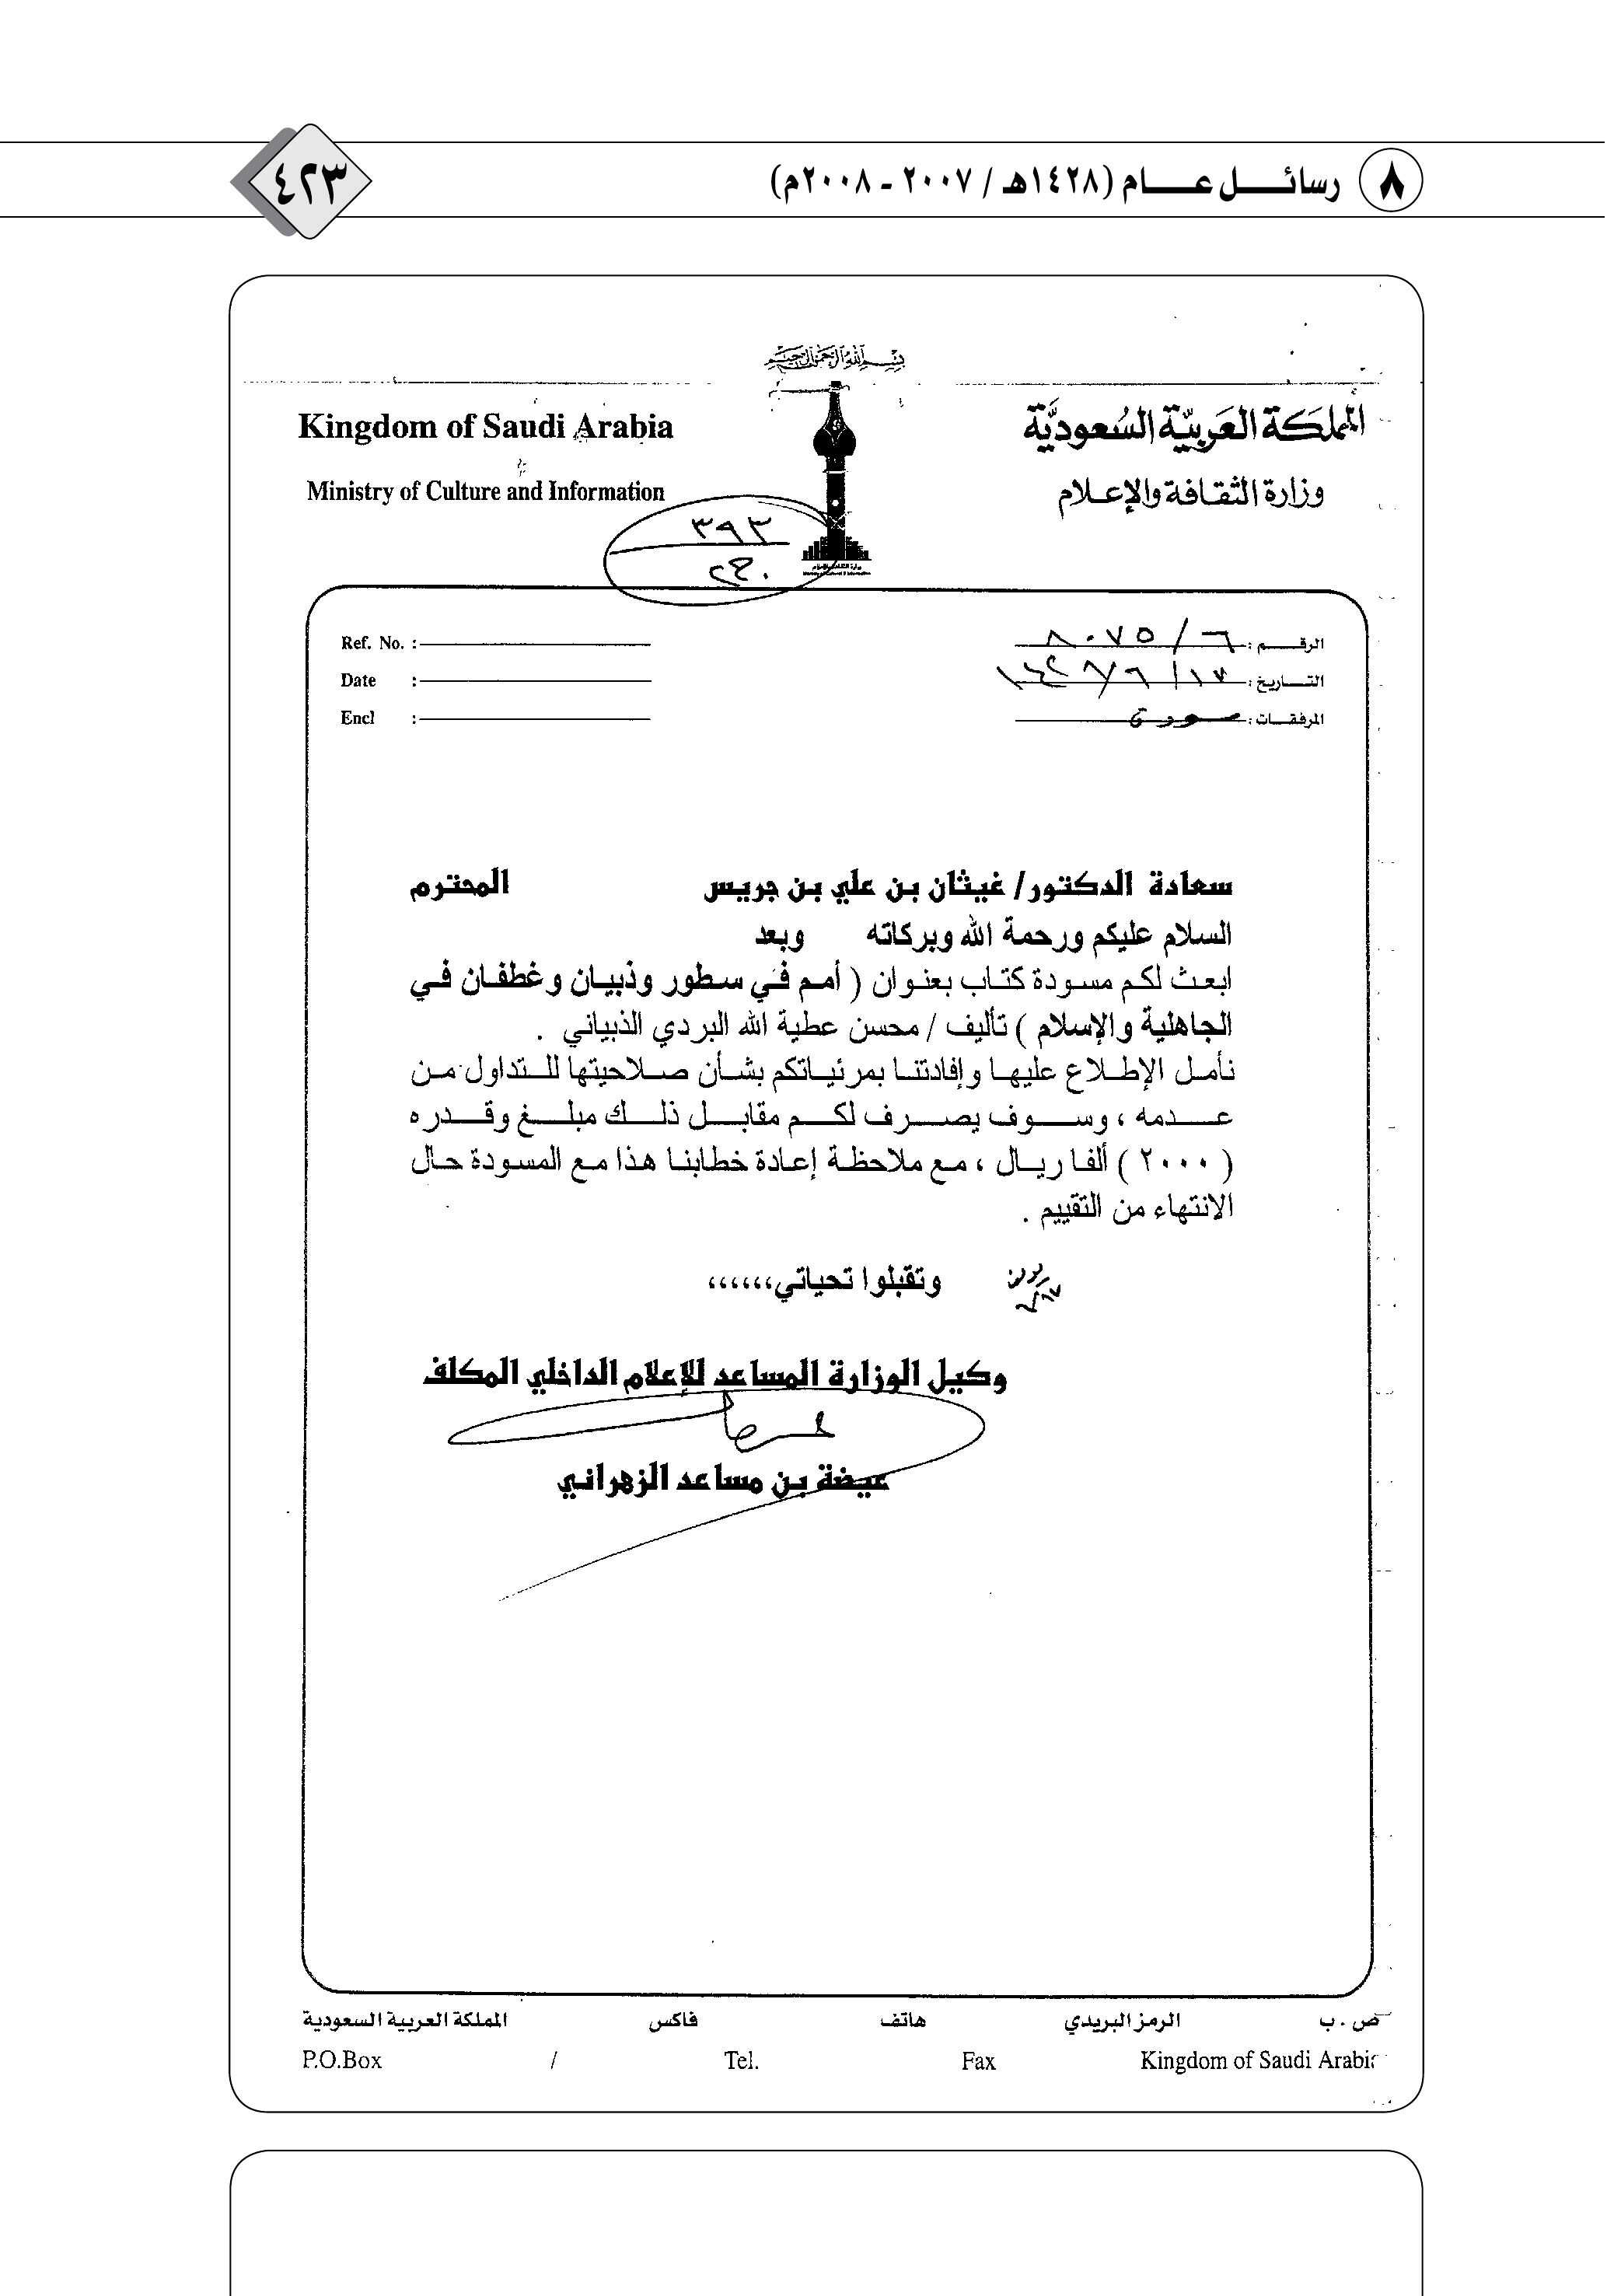 ٨ رسائل عام (١٤٢٨هـ / ٢٠٠٧ - ٢٠٠٨م)
٤٢٣
بسم الله الرحمن الرحيم
المملكة العربية السعودية
وزارة الثقافة والإعلام
Kingdom of Saudi Arabia
Ministry of Culture and Information
٣٩٣
الرقم : ٨٠٧٥/٦
التاريخ :
المرفقات : مسودة
Ref. No. :
Date :
Encl :
سعادة الدكتور/ غيثان بن علي بن جريس المحترم
السلام عليكم ورحمة الله وبركاته وبعد
ابعث لكم مسودة كتاب بعنوان ( أمم في سطور وذبيان وغطفان في
الجاهلية والإسلام ) تأليف / محسن عطية الله البردي الذبياني .
نأمل الإطلاع عليها وإفادتنا بمرئياتكم بشأن صلاحيتها للتداول من
عدمه ، وسوف يصرف لكم مقابل ذلك مبلغ وقدره
( ٢٠٠٠ ) ألفا ريال ، مع ملاحظة إعادة خطابنا هذا مع المسودة حال
الانتهاء من التقييم .
وتقبلوا تحياتي،،،،،،
وكيل الوزارة المساعد للإعلام الداخلي المكلف
عيضة بن مساعد الزهراني
ص . ب الرمز البريدي هاتف فاكس المملكة العربية السعودية
P.O.Box / Tel. Fax Kingdom of Saudi Arabia